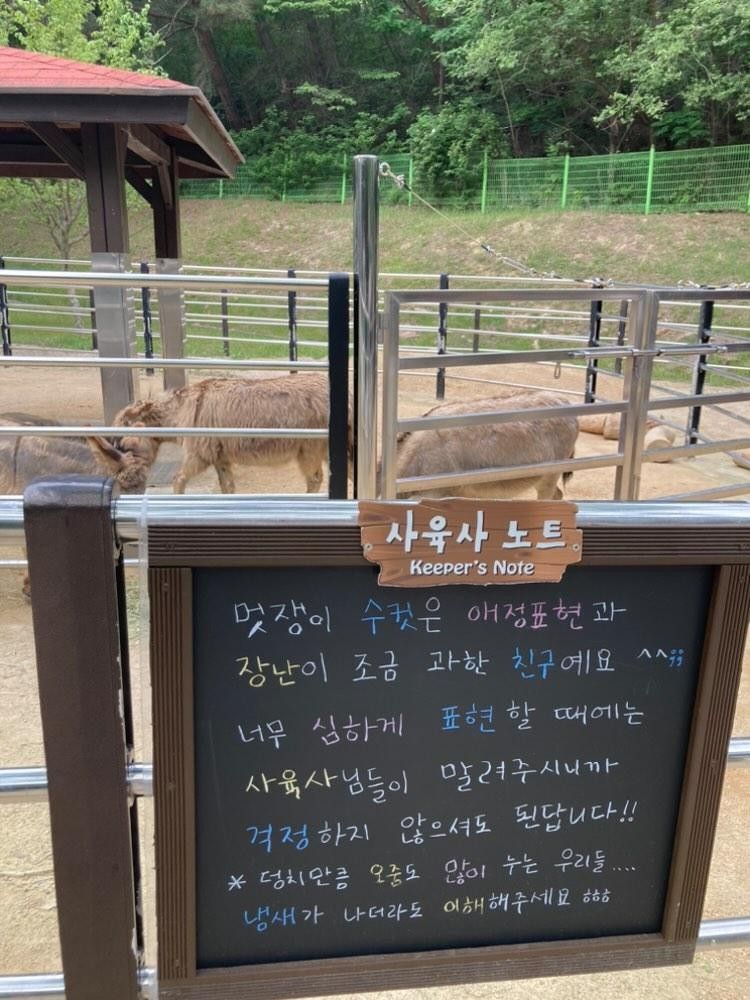 사육사 노트
Keeper's Note
멋쟁이 수컷은 애정표현과
장난이 조금 과한 친구예요 ^^;;
너무 심하게 표현할 때에는
사육사님들이 말려주시니까
걱정하지 않으셔도 된답니다!!
* 덩치만큼 오줌도 많이 누는 우리들....
냄새가 나더라도 이해해주세요 ㅎㅎㅎ